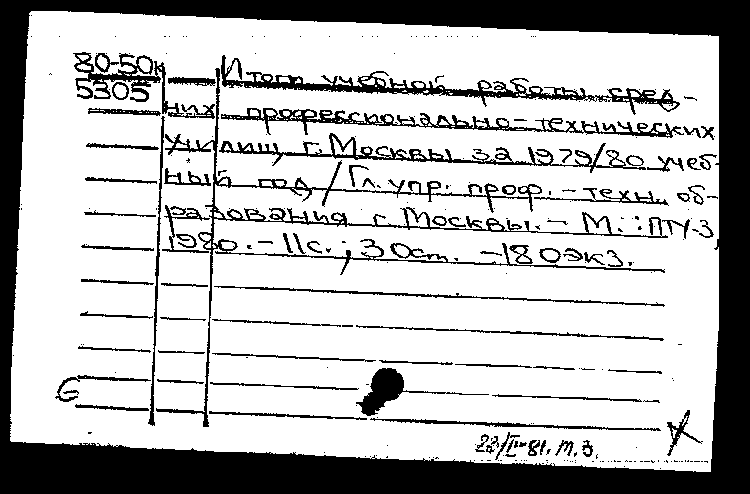 80-50к
5305
Итоги учебной работы сред-
них профессионально-технических
училищ г. Москвы за 1979/80 учеб-
ный год / Гл. упр. проф.-техн. об-
разования г. Москвы. - М.: ПТУ-3,
1980. - 11с.; 30см. - 180экз.
G
23/II-81. т.з.